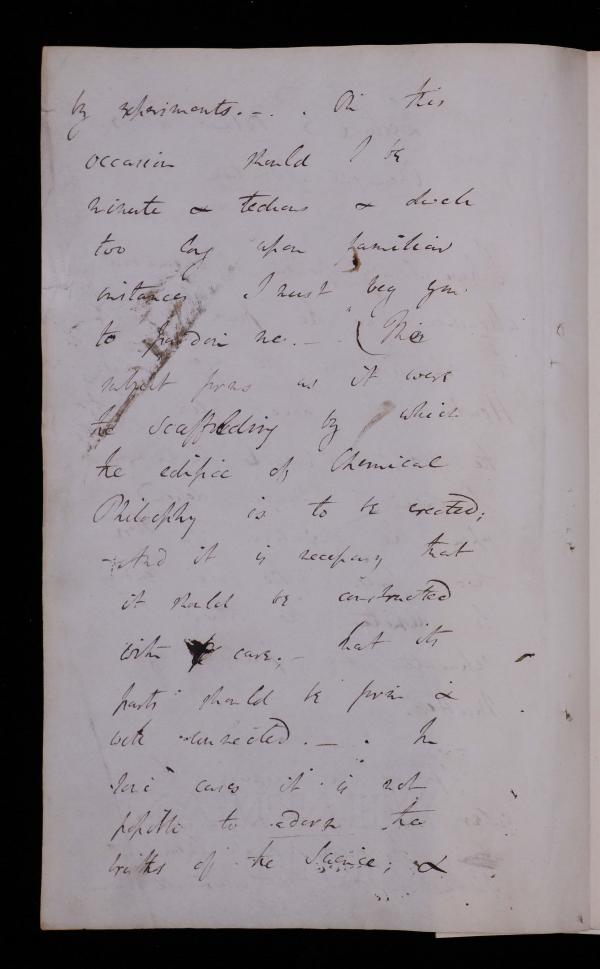 by experiments. - . On this
occasion should I be
minute & tedious & dwell
too long upon familiar
instances I must beg you
to pardon me. - . (This
subject forms as it were
the scaffolding by which
the edifice of Chemical
Philosophy is to be erected;
- And it is necessary that
it should be constructed
with care; - that its
parts should be firm &
well connected. - . In
some cases it is not
possible to adorn the
truths of the Science; &